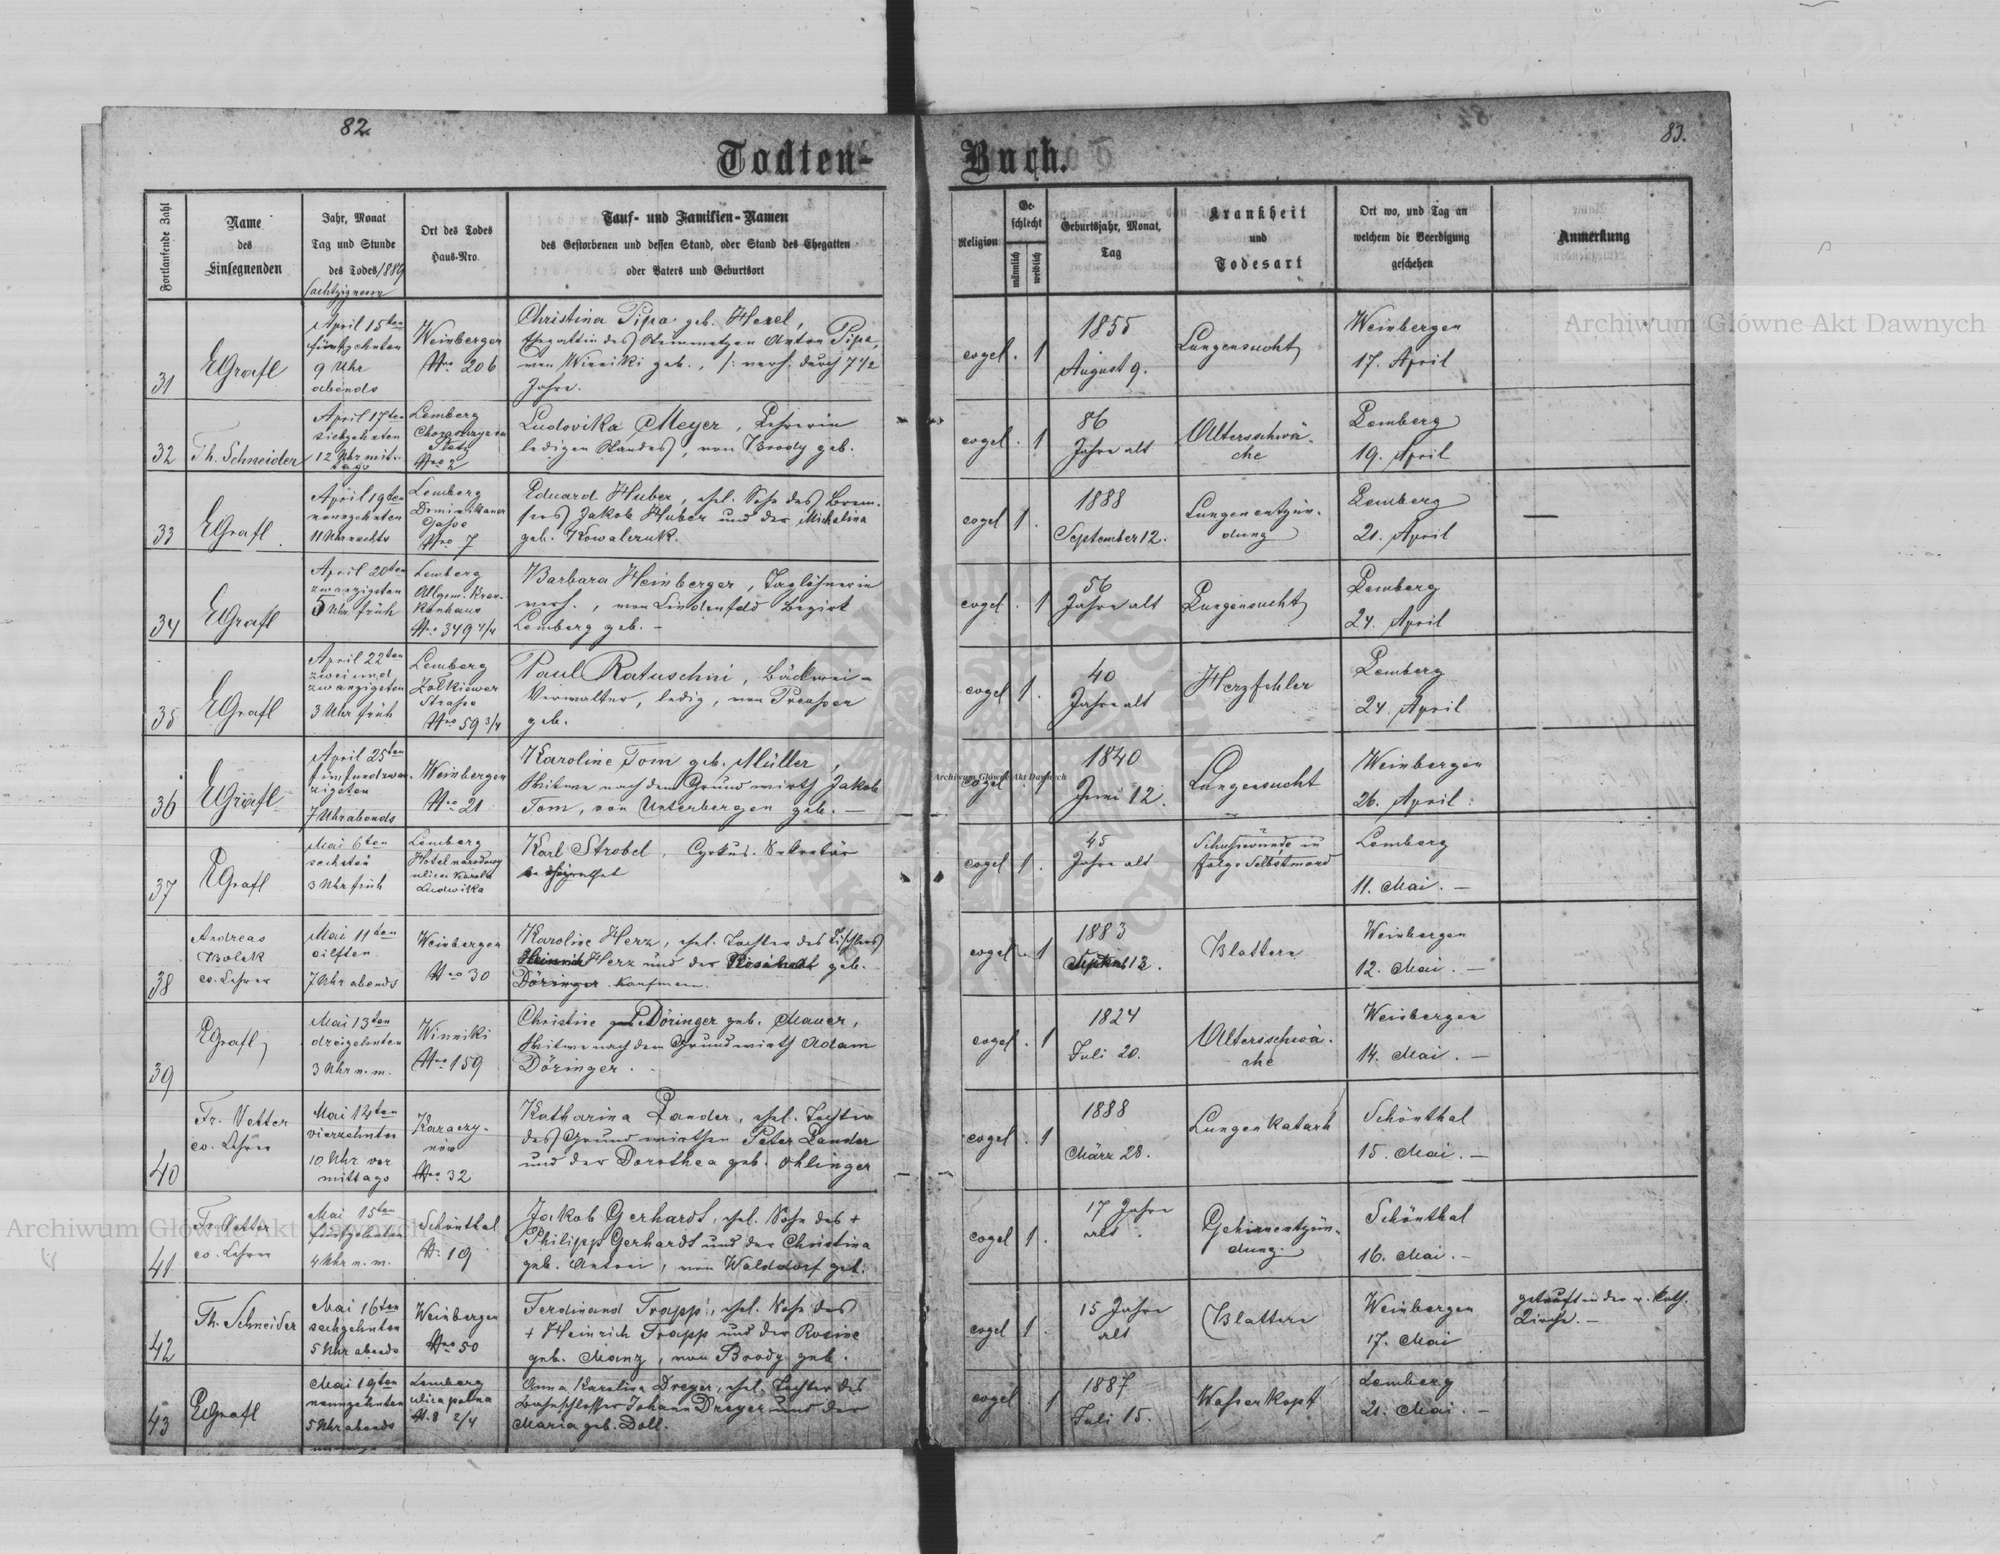 82.
83.
Todten-Buch.
Fortlaufende Zahl
Name
des
Einsegnenden
Jahr, Monat
Tag und Stunde
des Todes 1889
Ort des Todes
Haus-Nro.
Tauf- und Familien-Namen
des Gestorbenen und dessen Stand, oder Stand des Ehegatten
oder Vaters und Geburtsort
Religion
Ge-
schlecht
männlich
weiblich
Geburtsjahr, Monat,
Tag
Krankheit
und
Todesart
Ort wo, und Tag an
welchem die Beerdigung
geschehen
Anmerkung
31
EGrafl
April 15ten
fünfzehnten
9 Uhr
abends
Weinbergen
Nro 206
Christina Pipa geb. Hexel,
Ehegattin des Steinmetzen Anton Pipa,
von Winniki geb., /: verh. durch 7 1/2
Jahre.
evgel. 1
1855
August 9.
Lungensucht
Weinbergen
17. April
32
Th. Schneider
April 17ten
siebzehnten
12 Uhr mit-
tags
Lemberg
Platz
Nro 2
Ludovika Meyer, Lehrerin
ledigen Standes, von Brody geb.
evgel. 1
86
Jahre alt
Altersschwä-
che
Lemberg
19. April
33
EGrafl
April 19ten
neunzehnten
11 Uhr nachts
Lemberg
Dominikaner
Gasse
Nro 7
Eduard Huber, ehel. Sohn des Brem-
sers Jakob Huber und der Michalina
geb. Kowalczuk.
evgel 1.
1888
September 12.
Lungenentzün-
dung
Lemberg
21. April
—
34
EGrafl
April 20ten
zwanzigsten
5 Uhr früh
Lemberg
Allgem. Kran-
kenhaus
Nro 349 4/4
Barbara Heinberger, Taglöhnerin
verh., von Lindenfeld Bezirk
Lemberg geb. -
evgel. 1
56
Jahre alt
Lungensucht
Lemberg
24. April
35
EGrafl
April 22ten
zweiund
zwanzigsten
3 Uhr früh
Lemberg
Zołkiewer
Strasse
Nro 59 3/4
Paul Ratuschni, Bäckerei-
Verwalter, ledig, von
geb.
evgel 1.
40
Jahre alt
Herzfehler
Lemberg
24. April
36
EGrafl
April 25ten
fünfundzwan-
zigsten
7 Uhr abends
Weinbergen
Nro 21
Karoline Tom geb. Müller,
Witwe nach dem Grundwirth Jakob
Tom, von Unterbergen geb. —
evgel. 1
1840
Juni 12.
Lungensucht
Weinbergen
26. April.
37
EGrafl
Mai 6ten
sechsten
3 Uhr früh
Lemberg
Hotel narodowy
ulica Karola
Ludwika
Karl Strobel, Cyrkus-Sekretär
evgel. 1.
45
Jahre alt
Schusswunde in
folge Selbstmord
Lemberg
11. Mai. —
38
Andreas
Bolek
ev. Lehrer
Mai 11ten
eilften
7 Uhr abends
Weinbergen
Nro 30
Karoline Herz, ehel. Tochter des Tischlers
Heinrich Herz und der geb.
Döringer Kaufmann.
evgel. 1
1883
13.
Blattern
Weinbergen
12. Mai. —
39
EGrafl
Mai 13ten
dreizehnten
3 Uhr n. m.
Winniki
Nro 159
Christine Döringer geb. Mauer,
Witwe nach dem Grundwirth Adam
Döringer.
evgel. 1
1824
Juli 20.
Altersschwä-
che
Weinbergen
14. Mai. —
40
Fr. Vetter
ev. Lehrer
Mai 14ten
vierzehnten
10 Uhr vor
mittags
Karaczy-
nów
Nro 32
Katharina Lander, ehel. Tochter
des Grundwirthen Peter Lander
und der Dorothea geb. Ohlinger
evgel. 1
1888
März 28.
Lungenkatarh
Schönthal
15. Mai. —
41
Fr. Vetter
ev. Lehrer
Mai 15ten
fünfzehnten
4 Uhr n. m.
Schönthal
N. 19
Jakob Gerhardt, ehel. Sohn des +
Philipp Gerhardt und der Christina
geb. Antoni, von Walddorf geb.
evgel 1.
17 Jahre
alt
Gehirnentzün-
dung.
Schönthal
16. Mai. —
42
Th. Schneider
Mai 16ten
sechzehnten
5 Uhr abends
Weinbergen
Nro 50
Ferdinand Trapp, ehel. Sohn des
+ Heinrich Trapp und der Rosine
geb. Manz, von Brody geb.
evgel 1.
15 Jahre
alt
Blattern
Weinbergen
17. Mai
getauft in der r. kath.
Kirche. —
43
EGrafl
Mai 19ten
neunzehnten
5 Uhr abends
Lemberg
ulica polna
N. 8 2/4
Anna Karolina Dreyer, ehel. Tochter des
Bahnschlosser Johann Dreyer und der
Maria geb. Doll.
evgel. 1
1887
Juli 15.
Wasserkopf
Lemberg
21. Mai. —
Archiwum Główne Akt Dawnych
Archiwum Główne Akt Dawnych
Archiwum Główne Akt Dawnych